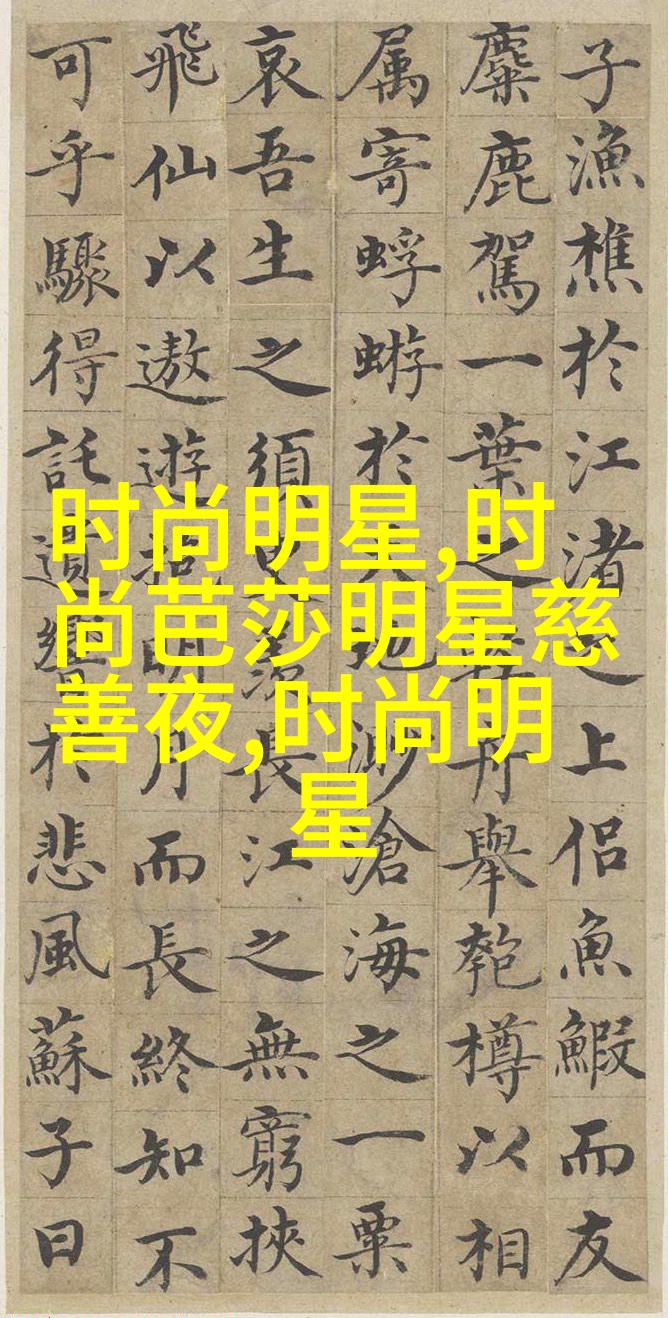 子漁樵於江渚之上侶魚鰕而友
麋鹿駕一葉之扁舟舉匏樽以相
属寄蜉蝣於天地渺滄海之一粟
哀吾生之須臾羨長江之無窮挾
飛仙以遨遊抱明月而長終知不
可乎驟得託遺響於悲風蘇子曰
时尚明星,时
尚芭莎明星慈
善夜,时尚明
星